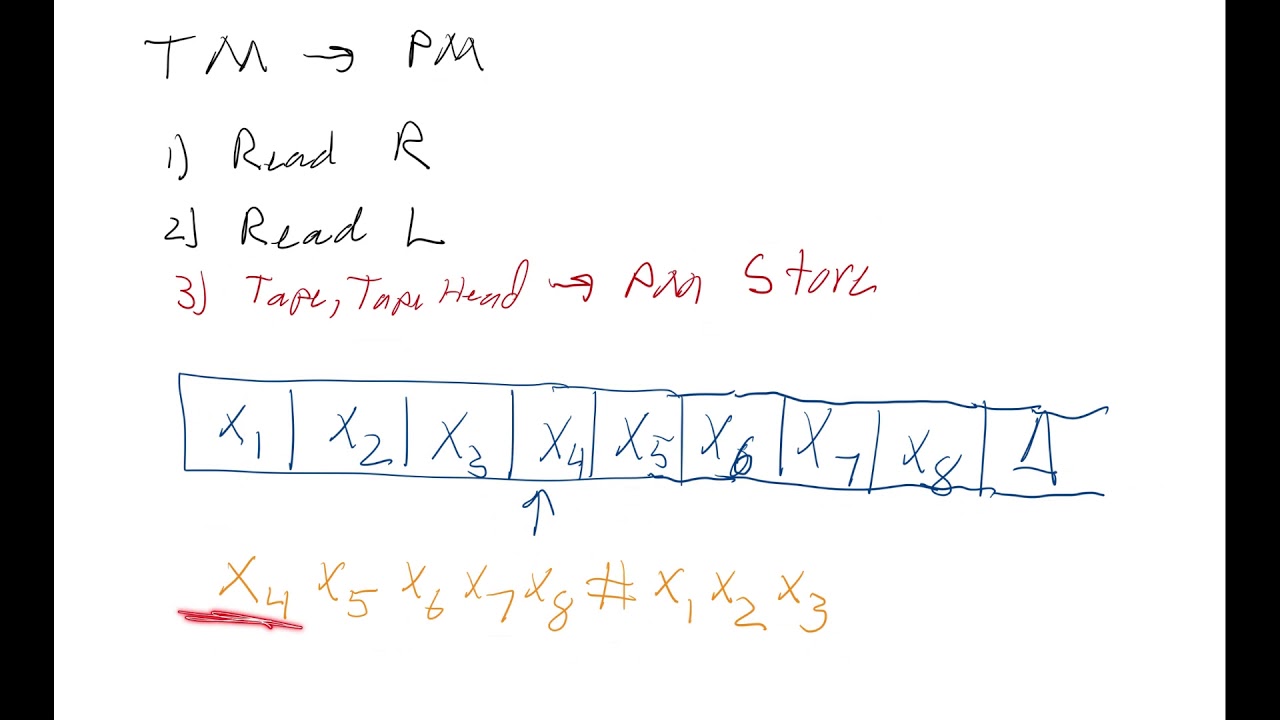 TM → PM
1) Read R
2) Read L
3) Tape, Tape Head → PM Store
X1 X2 X3 X4 X5 X6 X7 X8 Δ
↑
X4 X5 X6 X7 X8 # X1 X2 X3